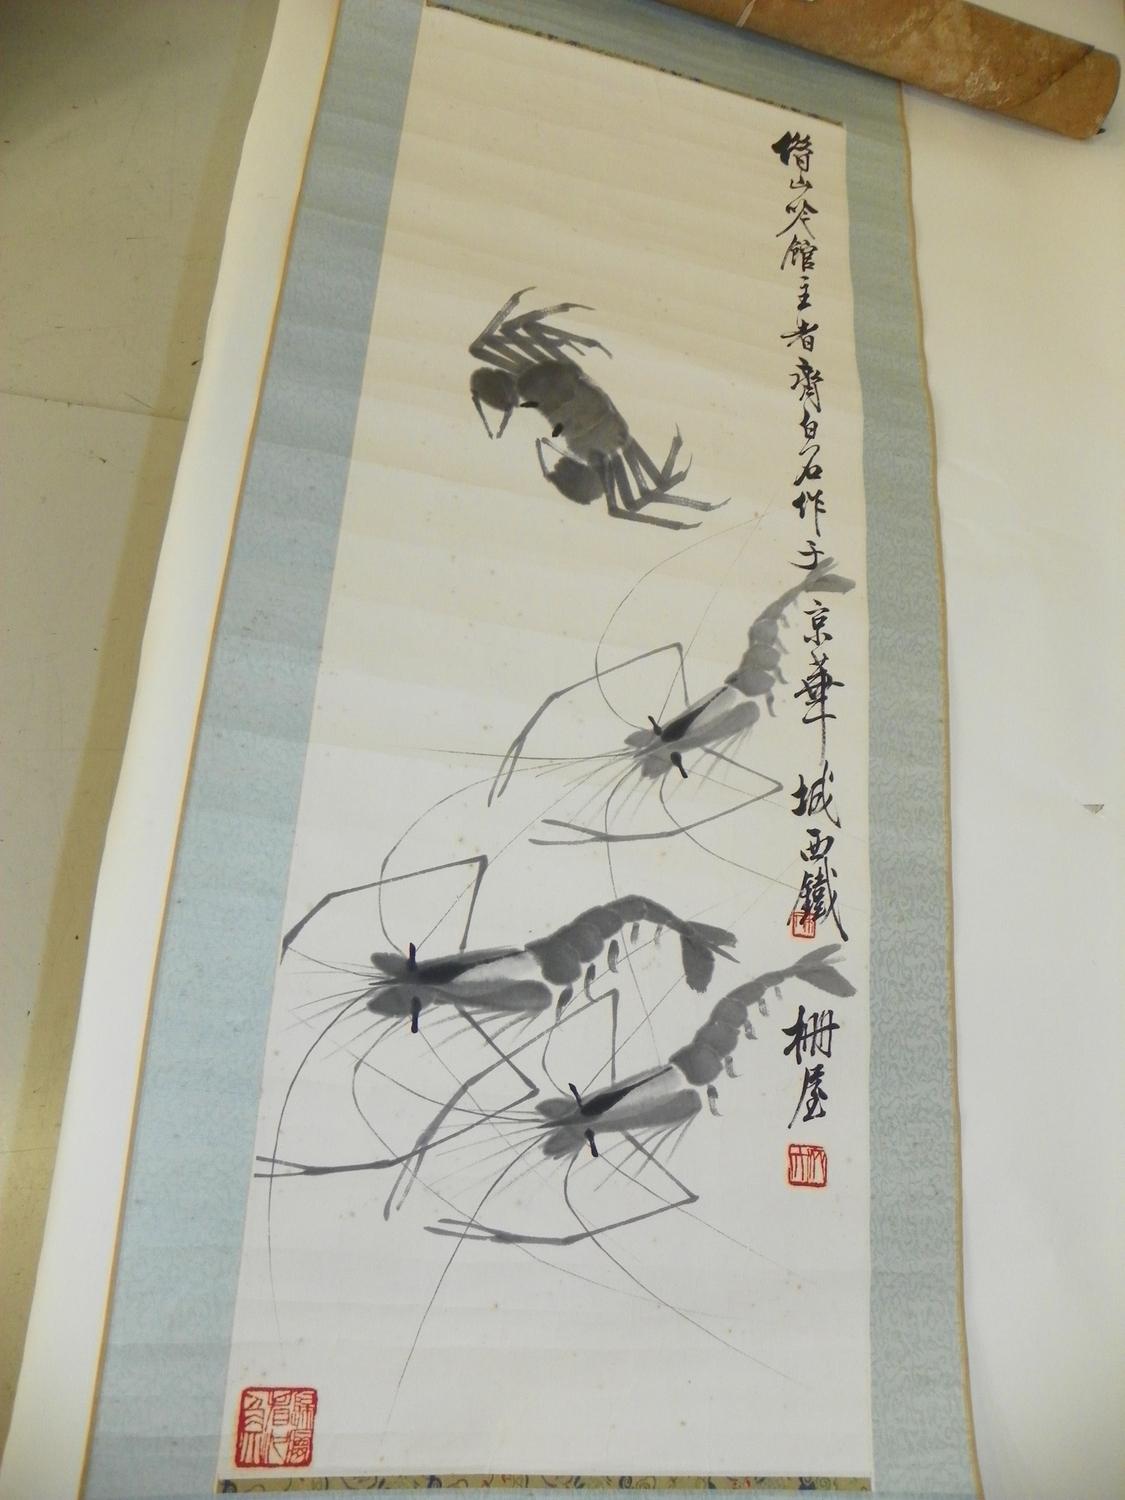 借山吟館主者齊白石作于京華城西鐵柵屋